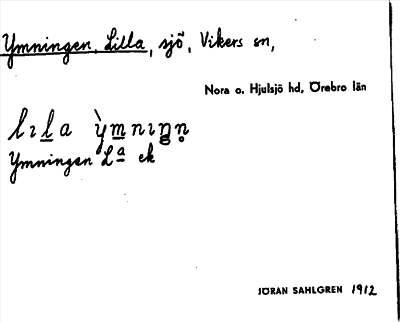 Ymningen, Lilla, sjö, Vikers sn,
Nora o. Hjulsjö hd, Örebro län
lıla ỳmnıŋn̥
Ymningen La ek
JÖRAN SAHLGREN 1912